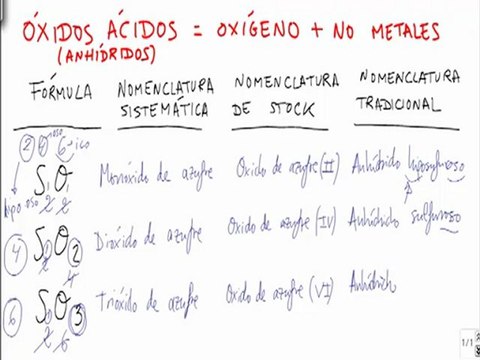 ÓXIDOS ÁCIDOS = OXÍGENO + NO METALES
(ANHÍDRIDOS)
FÓRMULA NOMENCLATURA SISTEMÁTICA NOMENCLATURA DE STOCK NOMENCLATURA TRADICIONAL
2 4 oso 6-ico
S1O1 Monóxido de azufre Oxido de azufre (II) Anhídrido hiposulfuroso
hipo oso 2 2
4 S1O2 Dióxido de azufre Oxido de azufre (IV) Anhídrido sulfuroso
2 4
6 S1O3 Trióxido de azufre Oxido de azufre (VI) Anhídrido
2 6
1/1